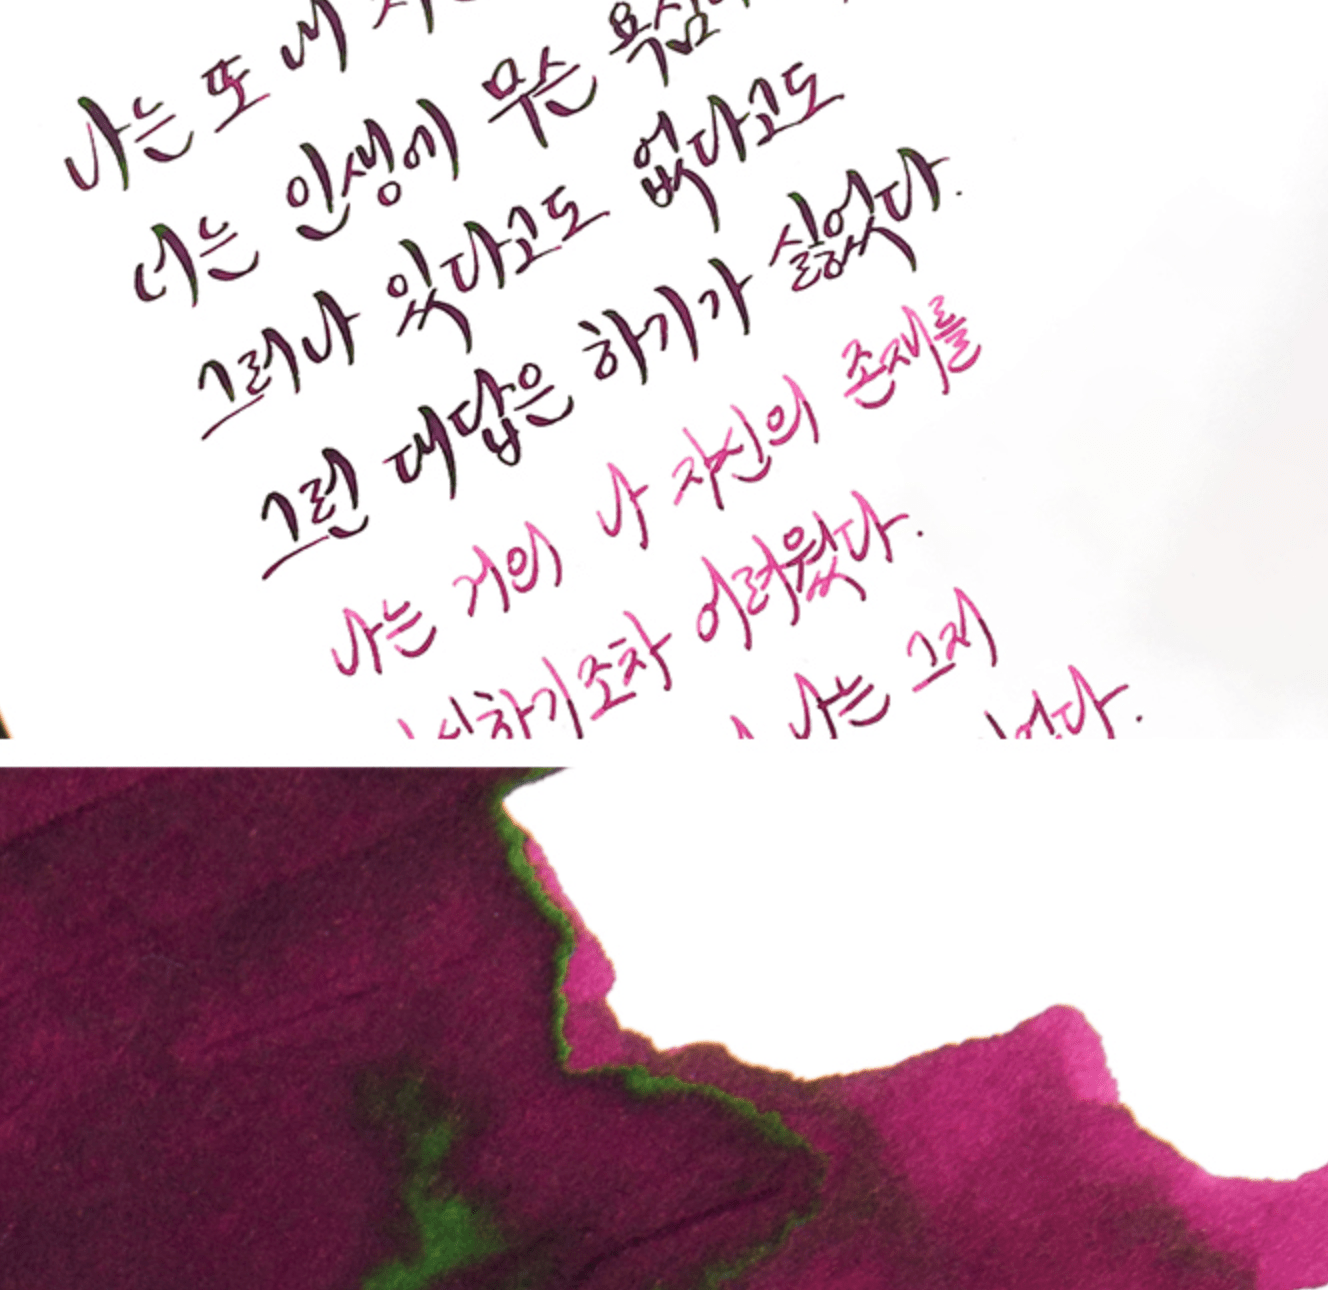 나는 또 내
너는 인생에 무슨 욕심
그러나 있다고도 없다고도
그런 대답은 하기가 싫었다.
나는 거의 나 자신의 존재를
식하기조차 어려웠다.
나는 그저
었다.